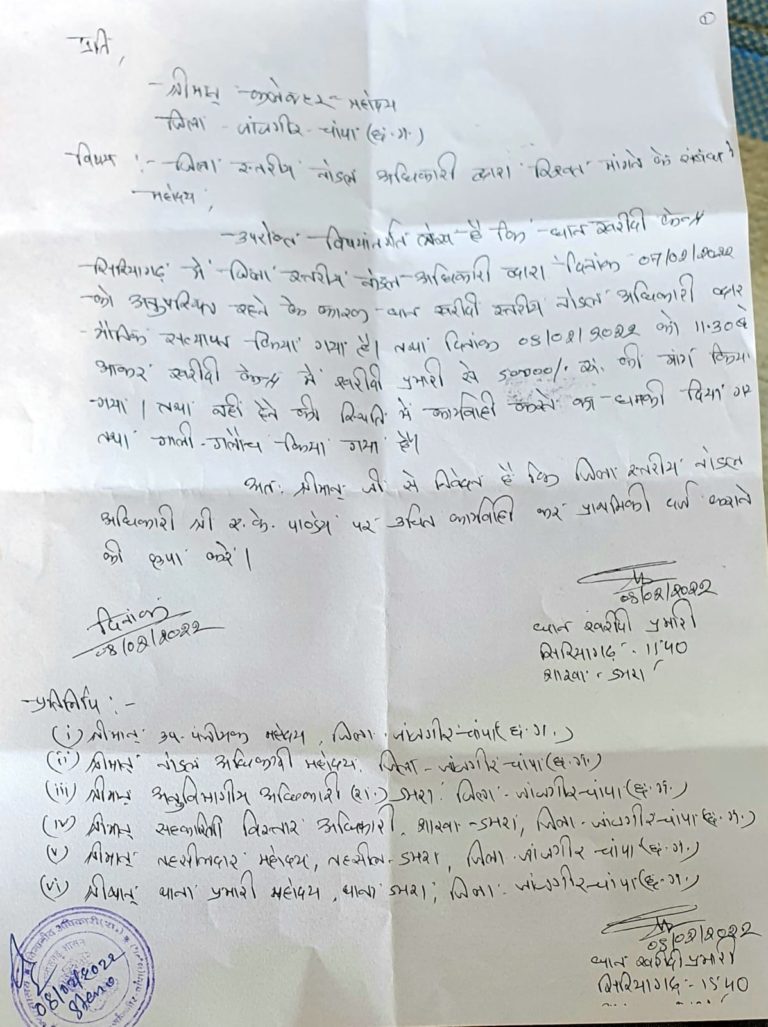 ①
प्रति,
श्रीमान् कलेक्टर महोदय
जिला - जांजगीर-चांपा (छ.ग.)
विषय :- जिला स्तरीय नोडल अधिकारी द्वारा रिश्वत मांगने के संबंध में
महोदय,
उपरोक्त विषयांतर्गत लेख है कि धान खरीदी केन्द्र
सिरियागढ़ में जिला स्तरीय नोडल अधिकारी द्वारा दिनांक 07/02/2022
को अनुपस्थित रहने के कारण धान खरीदी स्तरीय नोडल अधिकारी द्वारा
भौतिक सत्यापन किया गया है। तथा दिनांक 08/02/2022 को 11.30 बजे
आकर खरीदी केन्द्र में खरीदी प्रभारी से 50000/. रु. की मांग किया
गया। तथा नहीं देने की स्थिति में कार्यवाही करने का धमकी दिया गया
तथा गाली-गलौच किया गया है।
अतः श्रीमान् जी से निवेदन है कि जिला स्तरीय नोडल
अधिकारी श्री ए.के. पाण्डेय पर उचित कार्यवाही कर प्राथमिकी दर्ज कराने
की कृपा करें।
दिनांक
08/02/2022
08/02/2022
धान खरीदी प्रभारी
सिरियागढ़ - 1140
शाखा - डभरा
प्रतिलिपि :-
(i) श्रीमान् उप पंजीयक महोदय, जिला - जांजगीर-चांपा (छ.ग.)
(ii) श्रीमान् नोडल अधिकारी महोदय, जिला - जांजगीर-चांपा (छ.ग.)
(iii) श्रीमान् अनुविभागीय अधिकारी (रा.) डभरा जिला - जांजगीर-चांपा (छ.ग.)
(iv) श्रीमान् सहकारिता विस्तार अधिकारी, शाखा - डभरा, जिला - जांजगीर-चांपा (छ.ग.)
(v) श्रीमान् तहसीलदार महोदय, तहसील - डभरा, जिला - जांजगीर-चांपा (छ.ग.)
(vi) श्रीमान् थाना प्रभारी महोदय, थाना डभरा, जिला - जांजगीर-चांपा (छ.ग.)
08/02/2022
08/02/2022
धान खरीदी प्रभारी
सिरियागढ़ - 1140